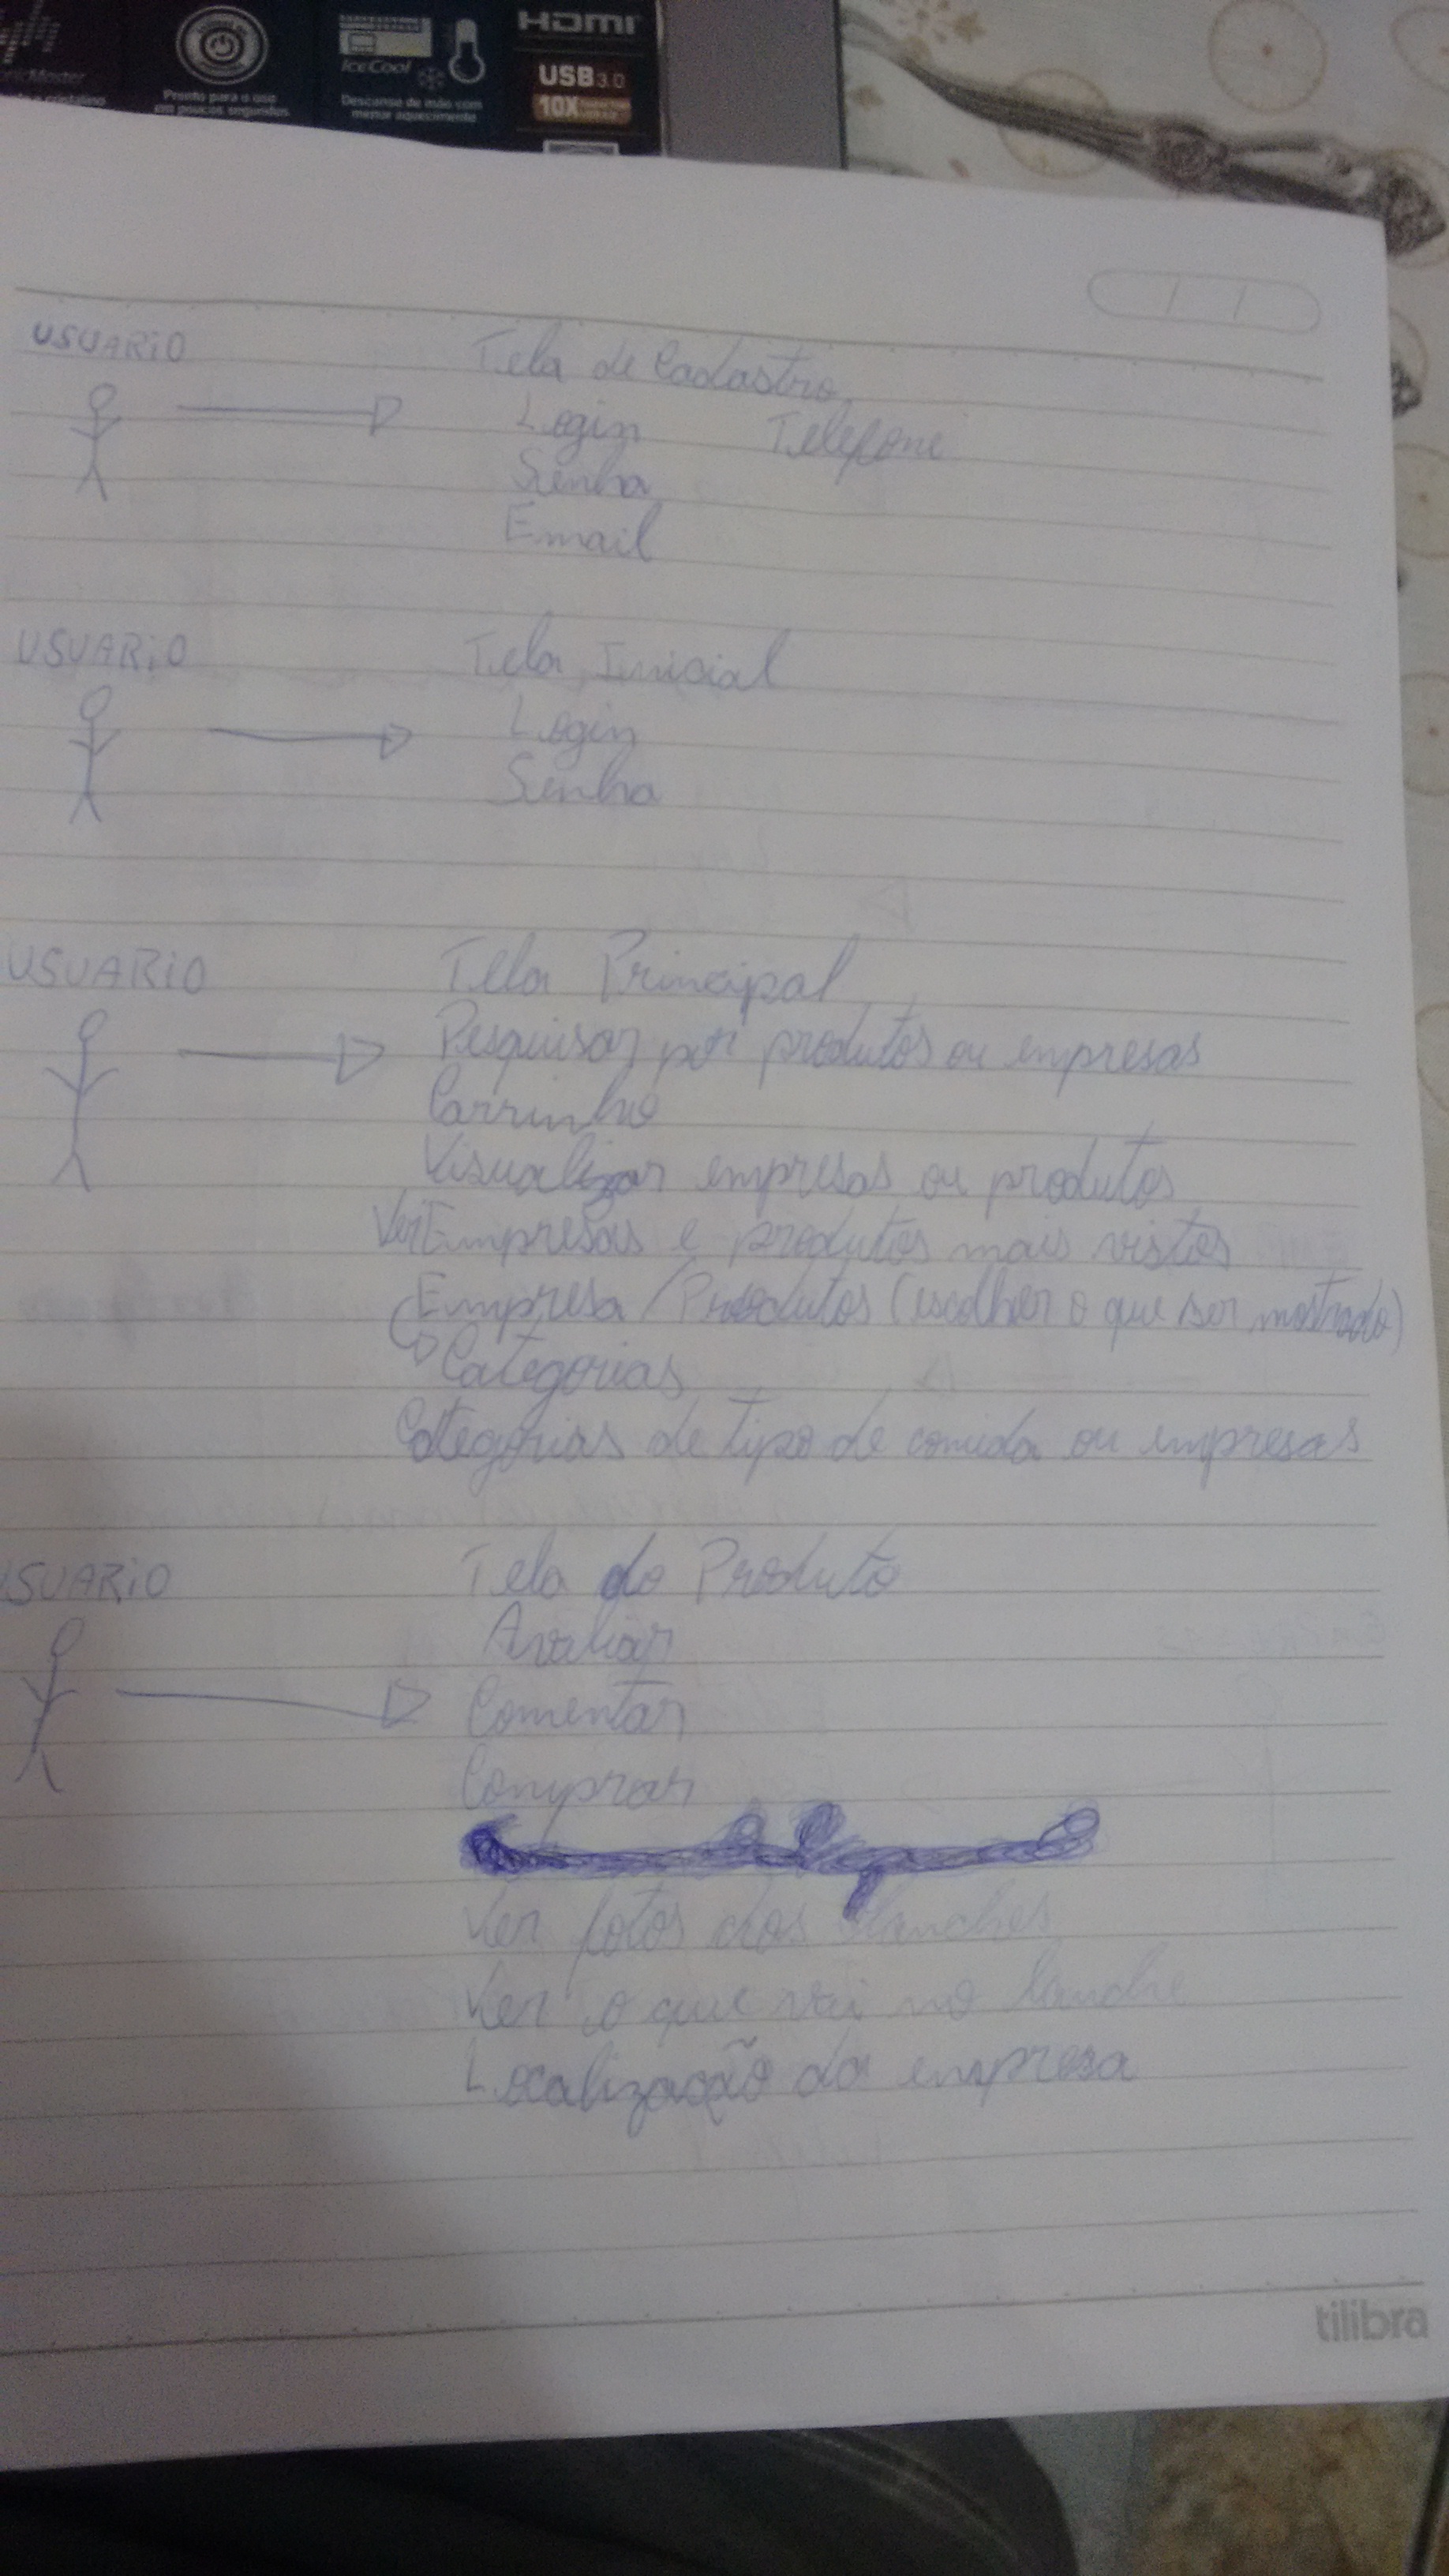 SonicMaster
Pronto para o uso
em poucos segundos
IceCool
Descanse de mão com
menor aquecimento
HDMI
USB 3.0
10X
USUARIO
Tela de Cadastro
Login Telefone
Senha
Email
USUARIO
Tela Inicial
Login
Senha
USUARIO
Tela Principal
Pesquisar por produtos ou empresas
Carrinho
Visualizar empresas ou produtos
Ver Empresas e produtos mais vistos
Empresa/Produtos (escolher o que ser mostrado)
Categorias
Categorias de tipo de comida ou empresas
USUARIO
Tela do Produto
Avaliar
Comentar
Comprar
Ver fotos dos lanches
Ver o que vai no lanche
Localização da empresa
tilibra